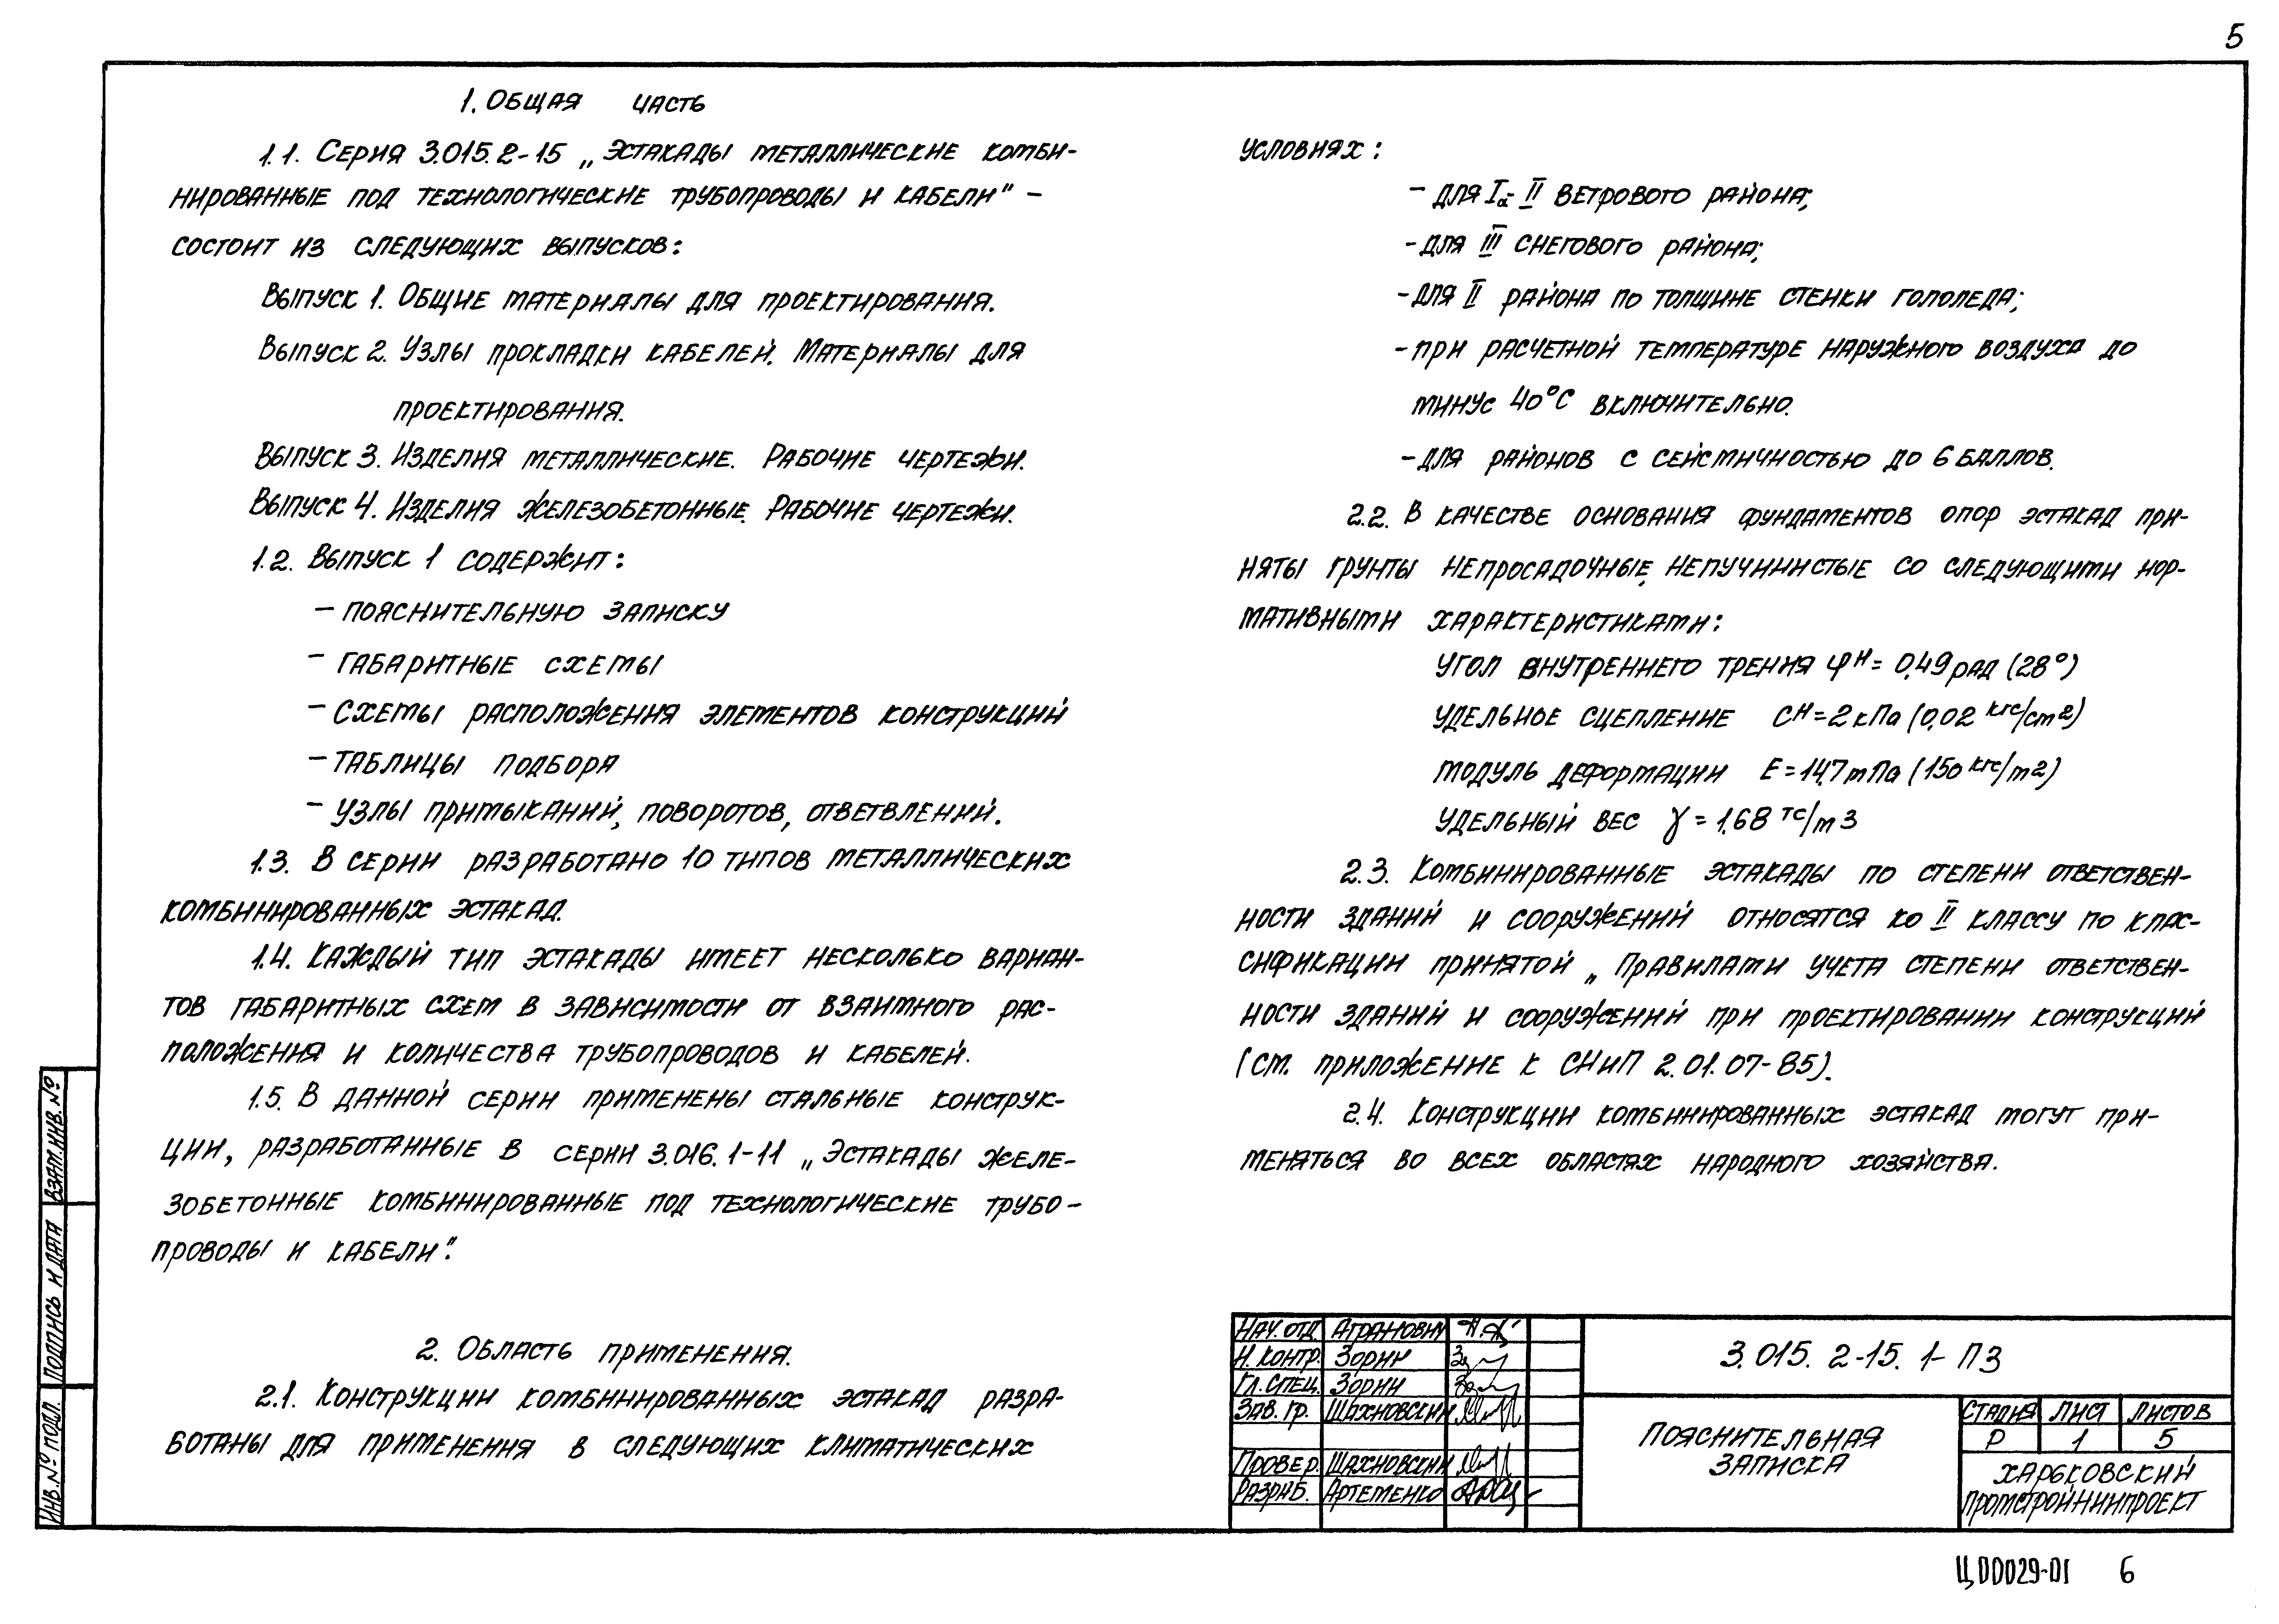 5
1. Общая часть
1.1. Серия 3.015.2-15 „Эстакады металлические комби-
нированные под технологические трубопроводы и кабели" –
состоит из следующих выпусков:
Выпуск 1. Общие материалы для проектирования.
Выпуск 2. Узлы прокладки кабелей. Материалы для
проектирования.
Выпуск 3. Изделия металлические. Рабочие чертежи.
Выпуск 4. Изделия железобетонные. Рабочие чертежи.
1.2. Выпуск 1 содержит:
– пояснительную записку
– габаритные схемы
– схемы расположения элементов конструкций
– таблицы подбора
– узлы примыканий, поворотов, ответвлений.
1.3. В серии разработано 10 типов металлических
комбинированных эстакад.
1.4. Каждый тип эстакады имеет несколько вариан-
тов габаритных схем в зависимости от взаимного рас-
положения и количества трубопроводов и кабелей.
1.5. В данной серии применены стальные конструк-
ции, разработанные в серии 3.016.1-11 „Эстакады желе-
зобетонные комбинированные под технологические трубо-
проводы и кабели".
2. Область применения.
2.1. Конструкции комбинированных эстакад разра-
ботаны для применения в следующих климатических
условиях:
– для Iа- II ветрового района;
– для III снегового района;
– для II района по толщине стенки гололеда;
– при расчетной температуре наружного воздуха до
минус 40°С включительно.
– для районов с сейсмичностью до 6 баллов.
2.2. В качестве основания фундаментов опор эстакад при-
няты грунты непросадочные, непучинистые со следующими нор-
мативными характеристиками:
угол внутреннего трения φн = 0,49 рад (28°)
удельное сцепление Сн = 2 кПа (0,02 кгс/см2)
модуль деформации Е = 14,7 мПа (150 кгс/м2)
удельный вес γ = 1,68 тс/м3
2.3. Комбинированные эстакады по степени ответствен-
ности зданий и сооружений относятся ко II классу по клас-
сификации принятой „Правилами учета степени ответствен-
ности зданий и сооружений при проектировании конструкций
(см. приложение к СНиП 2.01.07-85).
2.4. Конструкции комбинированных эстакад могут при-
меняться во всех областях народного хозяйства.
Взам. инв. №
Подпись и дата
Инв. № подл.
Нач. отд Агранович
Н. контр. Зорин
Гл. спец. Зорин
Зав. гр. Шахновский
Провер. Шахновский
Разраб. Артеменко
3.015.2-15.1-ПЗ
Пояснительная
записка
Стадия Лист Листов
Р 1 5
Харьковский
Промстройниипроект
Ц00029-01 6